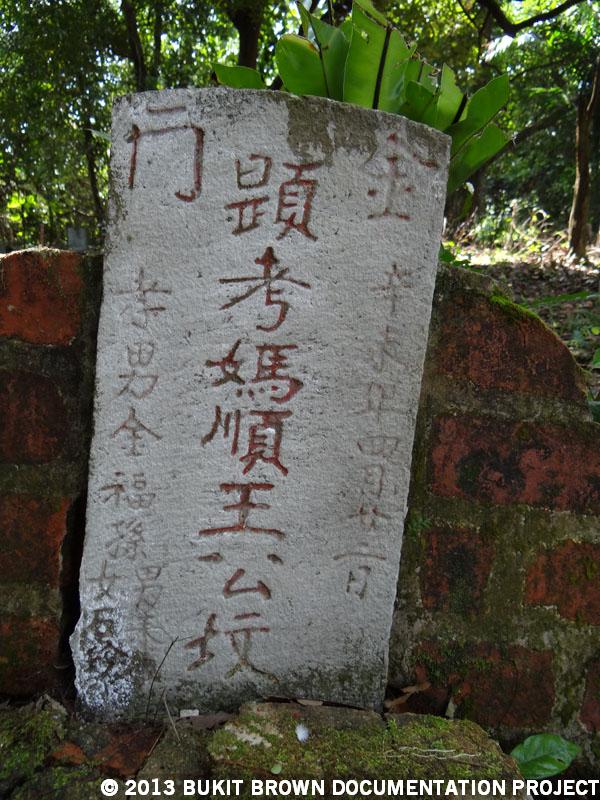 金门
辛未年四月廿二日
顕考媽順王公坟
孝男金福孫男
女石
© 2013 BUKIT BROWN DOCUMENTATION PROJECT